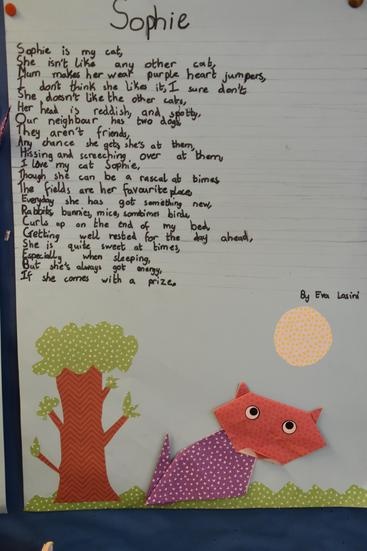 Sophie
Sophie is my cat,
She isn't like any other cat,
Mum makes her wear purple heart jumpers,
I don't think she likes it, I sure don't.
She doesn't like the other cats,
Her head is reddish, and spotty,
Our neighbour has two dogs,
They aren't friends,
Any chance she gets she's at them,
Hissing and screeching over at them,
I love my cat Sophie,
Though she can be a rascal at times
The fields are her favourite place,
Everyday she has got something new,
Rabbits, bunnies, mice, sometimes birds,
Curls up on the end of my bed,
Getting well rested for the day ahead,
She is quite sweet at times,
Especially when sleeping,
But she's always got energy,
If she comes with a prize.
By Eva Lasini